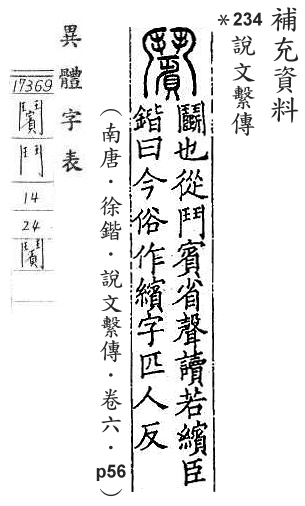 補充資料
*234 說文繫傳
鬭也從鬥賓省聲讀若繽臣
鍇曰今俗作繽字匹人反
(南唐.徐鍇.說文繫傳.卷六.p56)
異體字表
17369
鬥
14
24